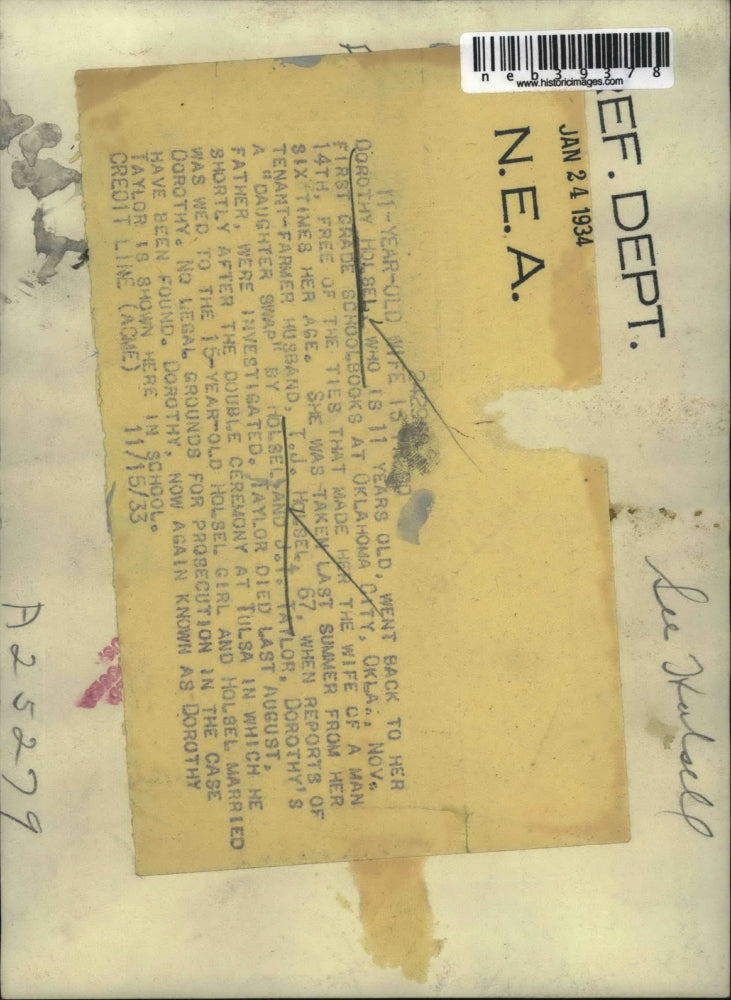 neb39378
www.historicimages.com
REF. DEPT.
JAN 24 1934
N.E.A.
See Halsell
11-YEAR-OLD WIFE IS
DOROTHY HOLSEL, WHO IS 11 YEARS OLD, WENT BACK TO HER
FIRST GRADE SCHOOLBOOKS AT OKLAHOMA CITY, OKLA., NOV.
14TH, FREE OF THE TIES THAT MADE HER THE WIFE OF A MAN
SIX TIMES HER AGE. SHE WAS TAKEN LAST SUMMER FROM HER
TENANT-FARMER HUSBAND, T.J. HOLSEL, 67, WHEN REPORTS OF
A "DAUGHTER SWAP" BY HOLSEL AND J.T. TAYLOR, DOROTHY'S
FATHER, WERE INVESTIGATED. TAYLOR DIED LAST AUGUST,
SHORTLY AFTER THE DOUBLE CEREMONY AT TULSA IN WHICH HE
WAS WED TO THE 15-YEAR-OLD HOLSEL GIRL AND HOLSEL MARRIED
DOROTHY. NO LEGAL GROUNDS FOR PROSECUTION IN THE CASE
HAVE BEEN FOUND. DOROTHY, NOW AGAIN KNOWN AS DOROTHY
TAYLOR IS SHOWN HERE IN SCHOOL.
CREDIT LINE (ACME) 11/15/33
A25279